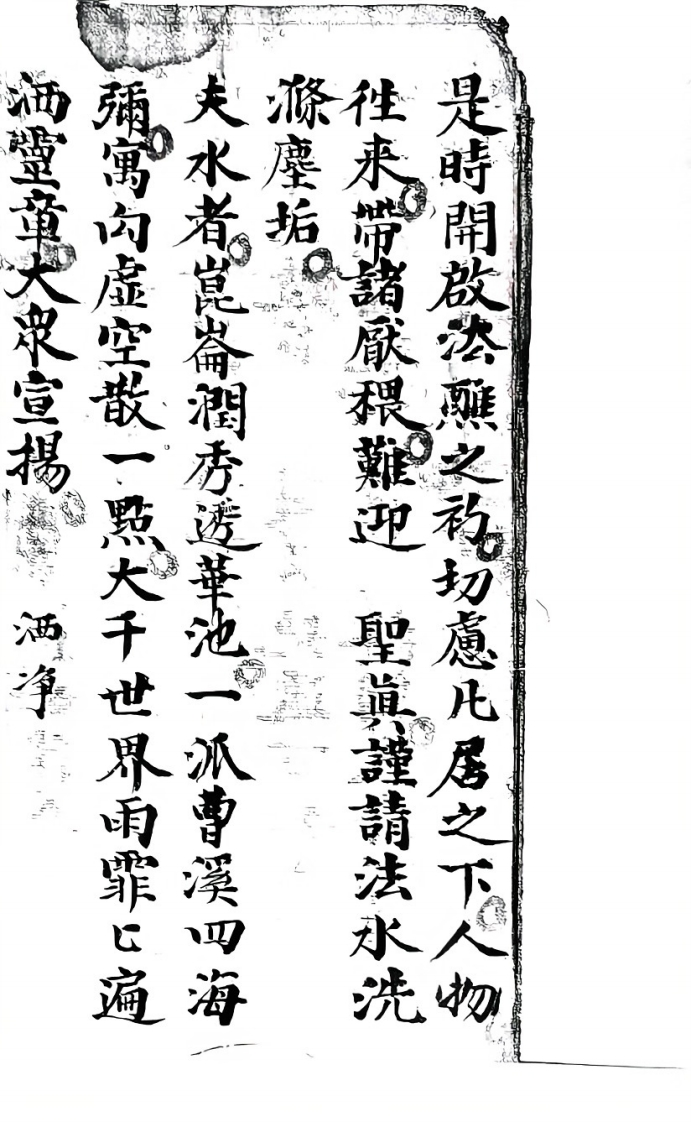 是時開啟法醮之初切慮凡居之下人物
徃来帶諸厭穢難迎 聖眞謹請法水洗
滌塵垢
夫水者崑崙潤秀透華池一派曹溪四海
彌寓勾虛空散一點大千世界雨霏匕遍
洒靈章大眾宣揚 洒净